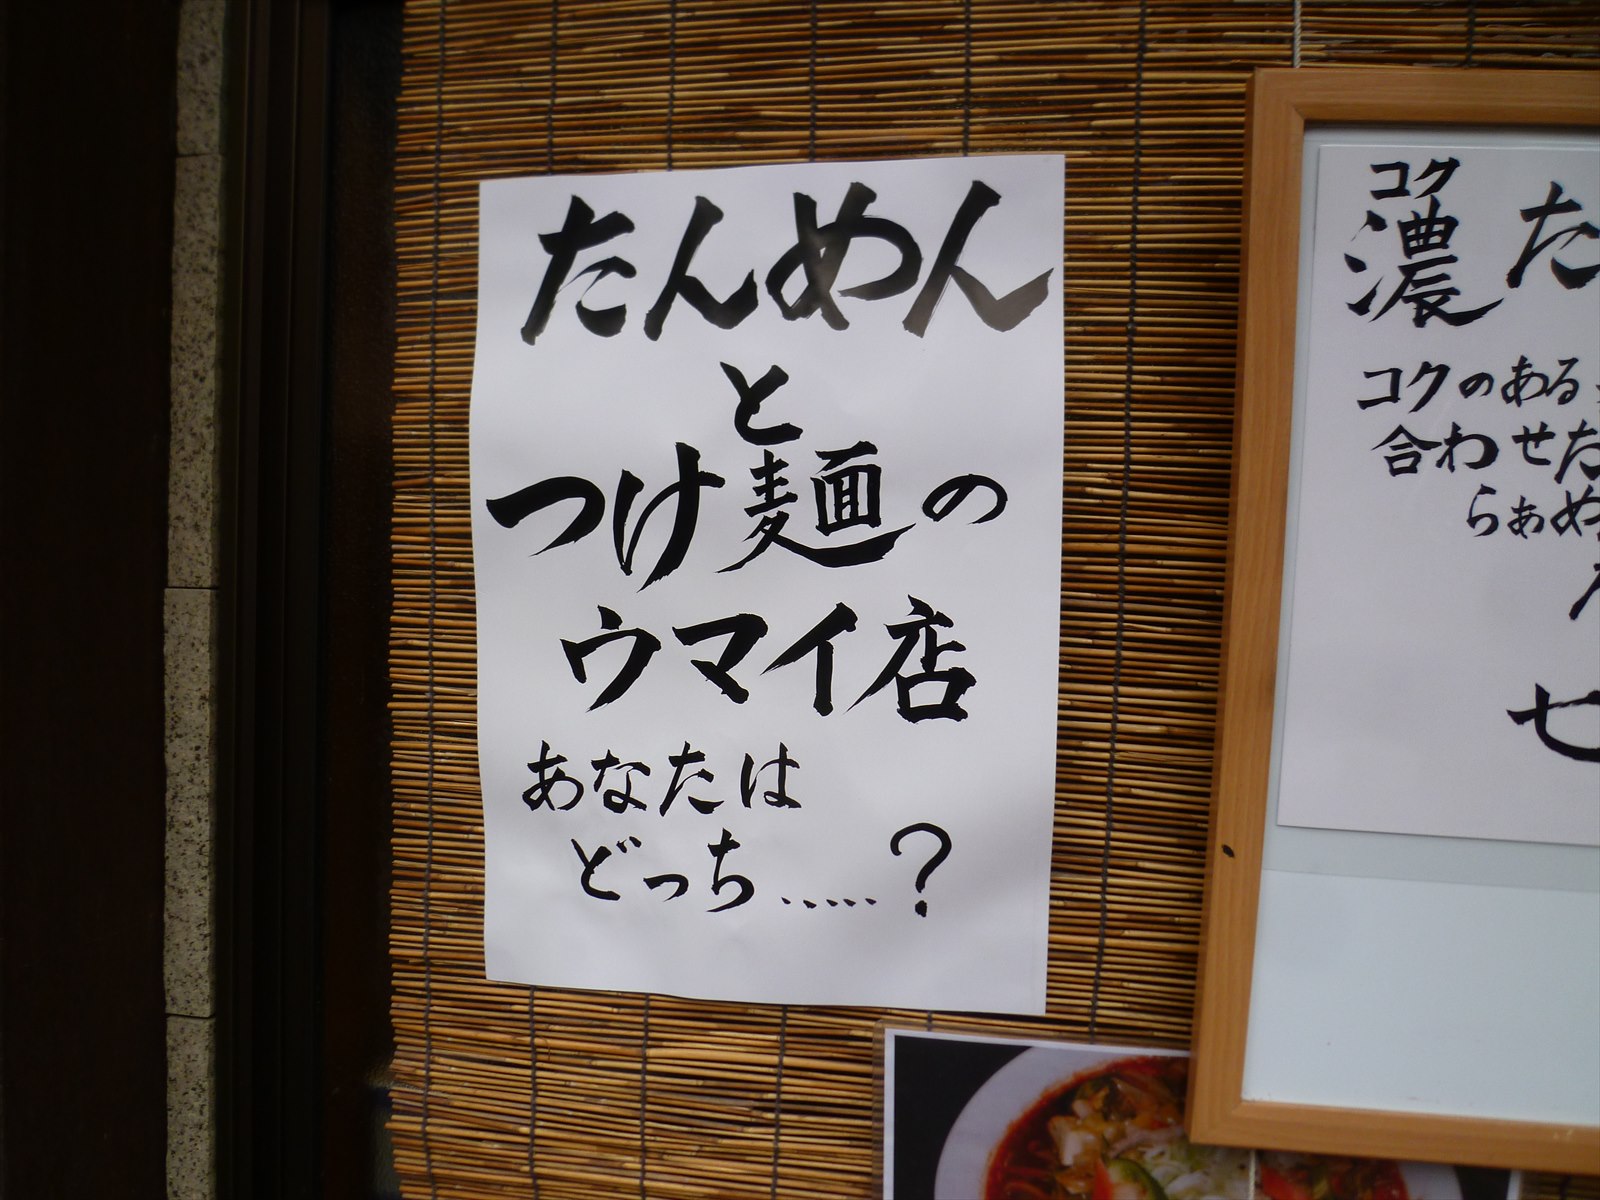 たんめん
と
つけ麺の
ウマイ店
あなたは
どっち……?
コク
濃た
コクのある
合わせた
らぁめ
七